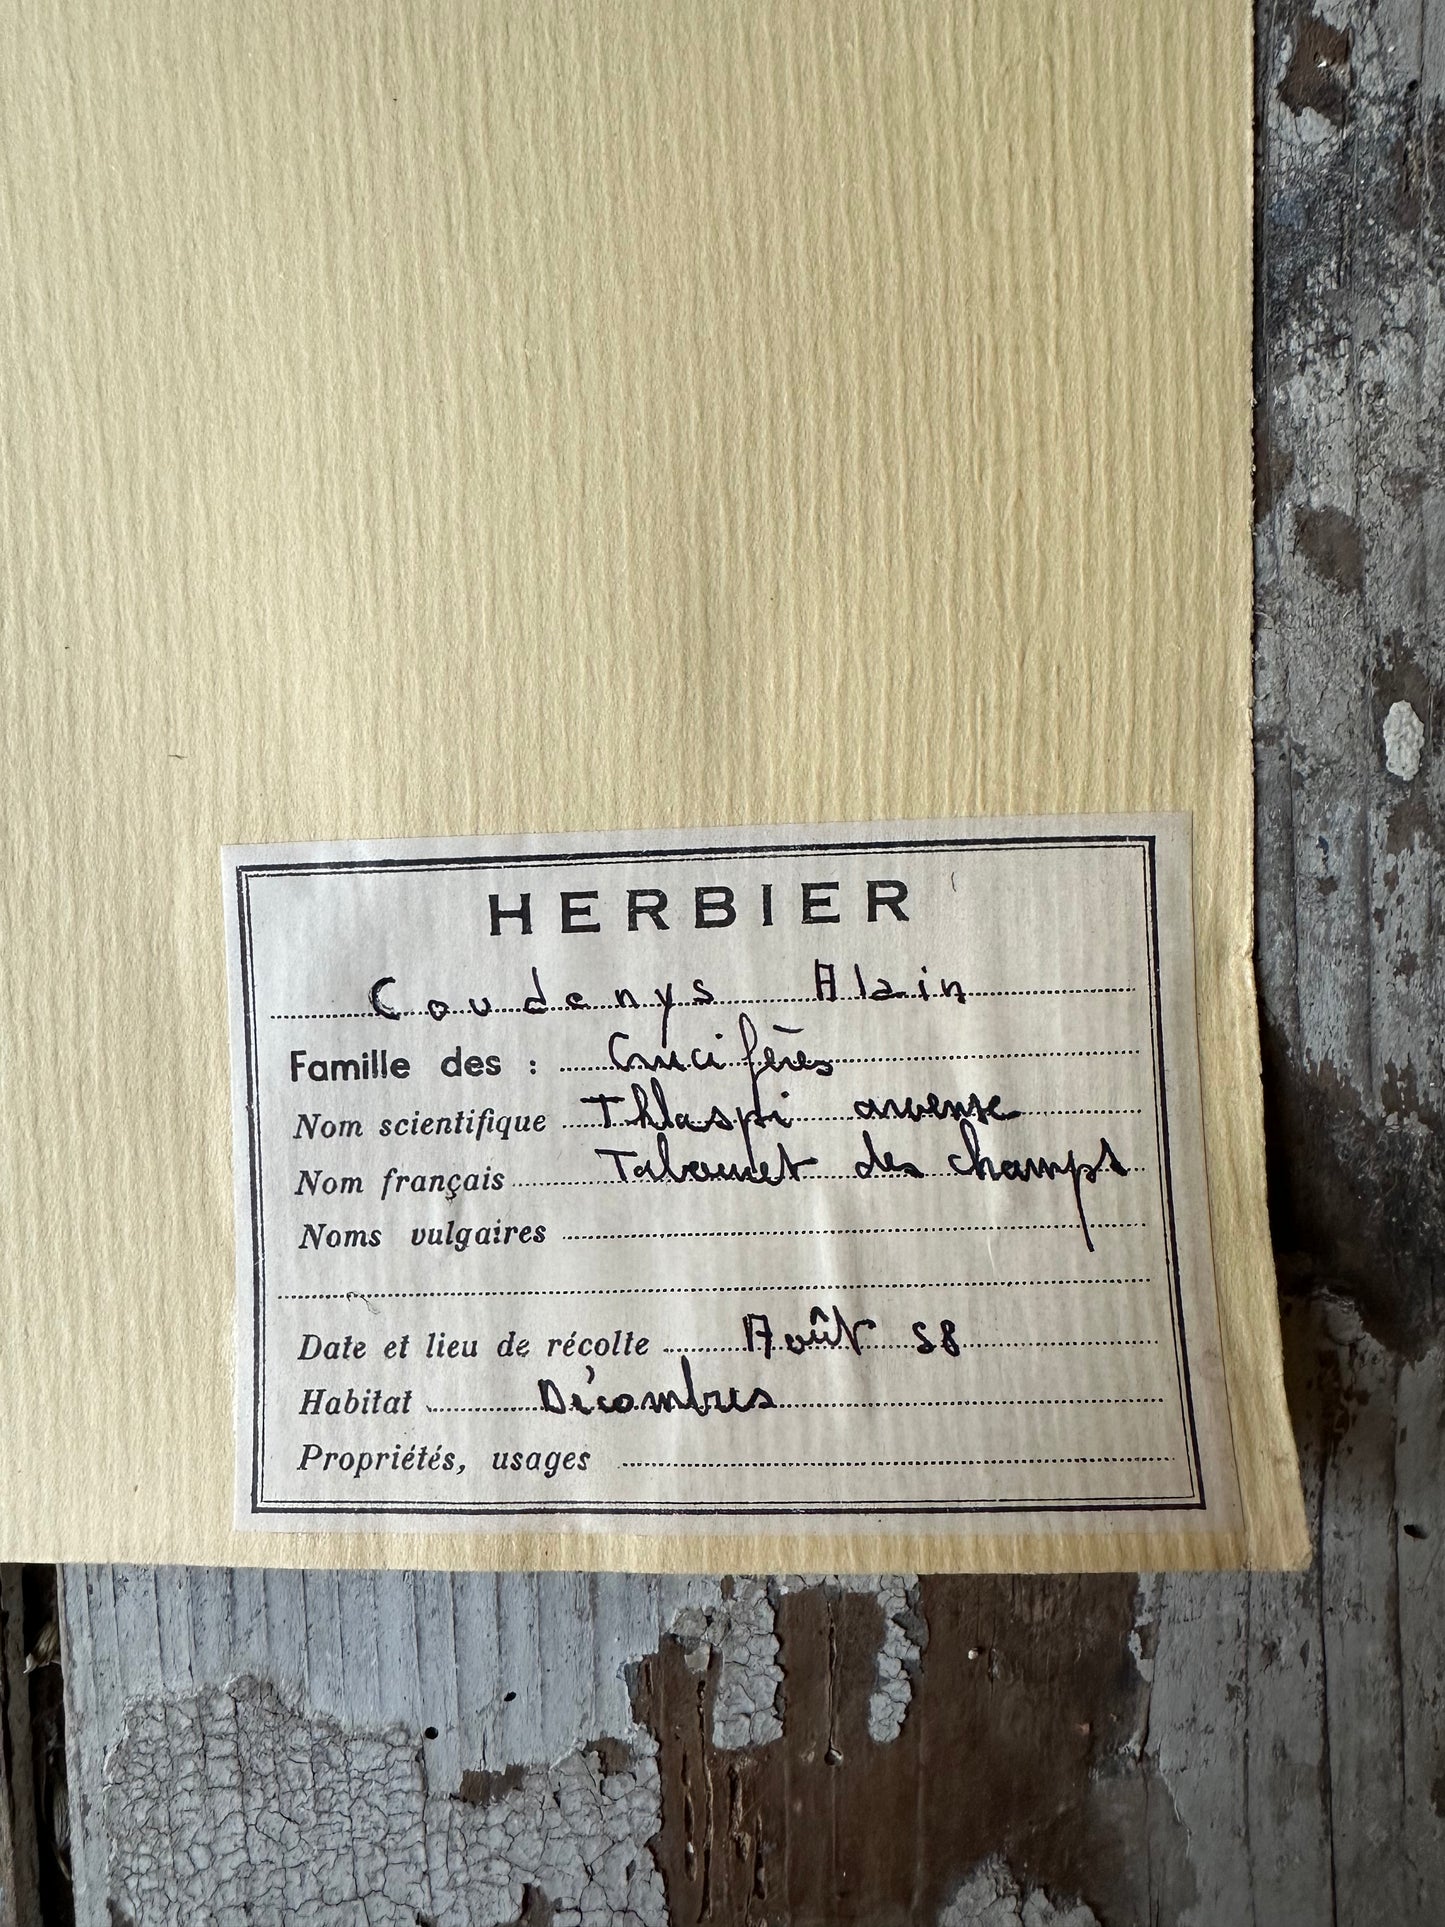 HERBIER
Coudenys Alain
Famille des : Crucifères
Nom scientifique Thlaspi arvense
Nom français Tabouret des champs
Noms vulgaires
Date et lieu de récolte Août 58
Habitat Décombres
Propriétés, usages